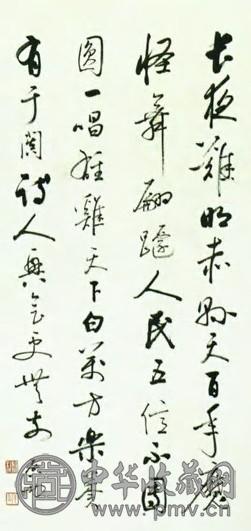 長夜難明赤縣天百年魔
怪舞翩躚人民五億不團
圓一唱雄雞天下白萬方樂奏
有于闐詩人興會更無前
中华收藏网
www.pmv.cn